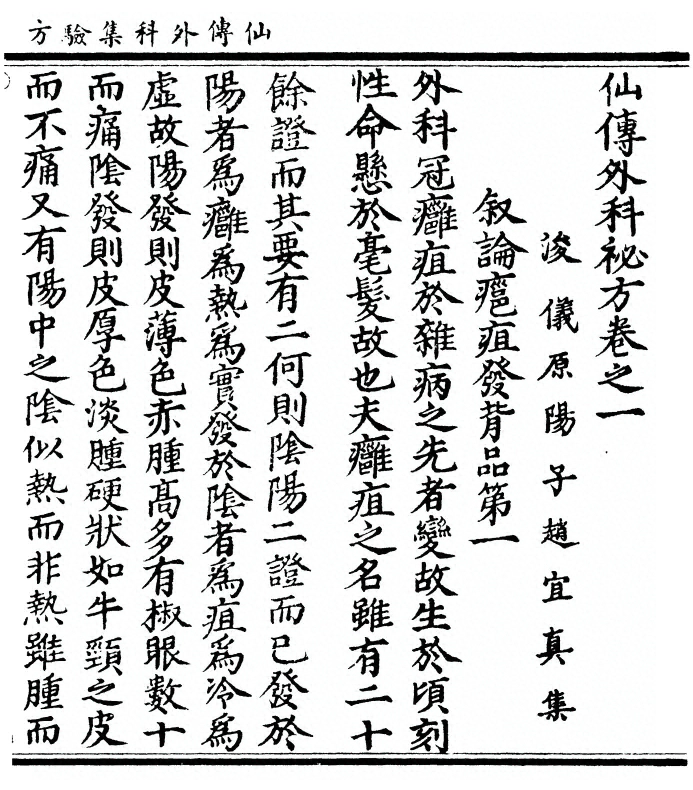 仙傳外科集驗方
仙傳外科祕方卷之一
浚儀原陽子趙宜真集
叙論癰疽發背品第一
外科冠癰疽於雜病之先者變故生於頃刻
性命懸於毫髮故也夫癰疽之名雖有二十
餘證而其要有二何則陰陽二證而已發於
陽者爲癰爲熱爲實發於陰者爲疽爲冷爲
虛故陽發則皮薄色赤腫高多有椒眼數十
而痛陰發則皮厚色淡腫硬狀如牛頸之皮
而不痛又有陽中之陰似熱而非熱雖腫而